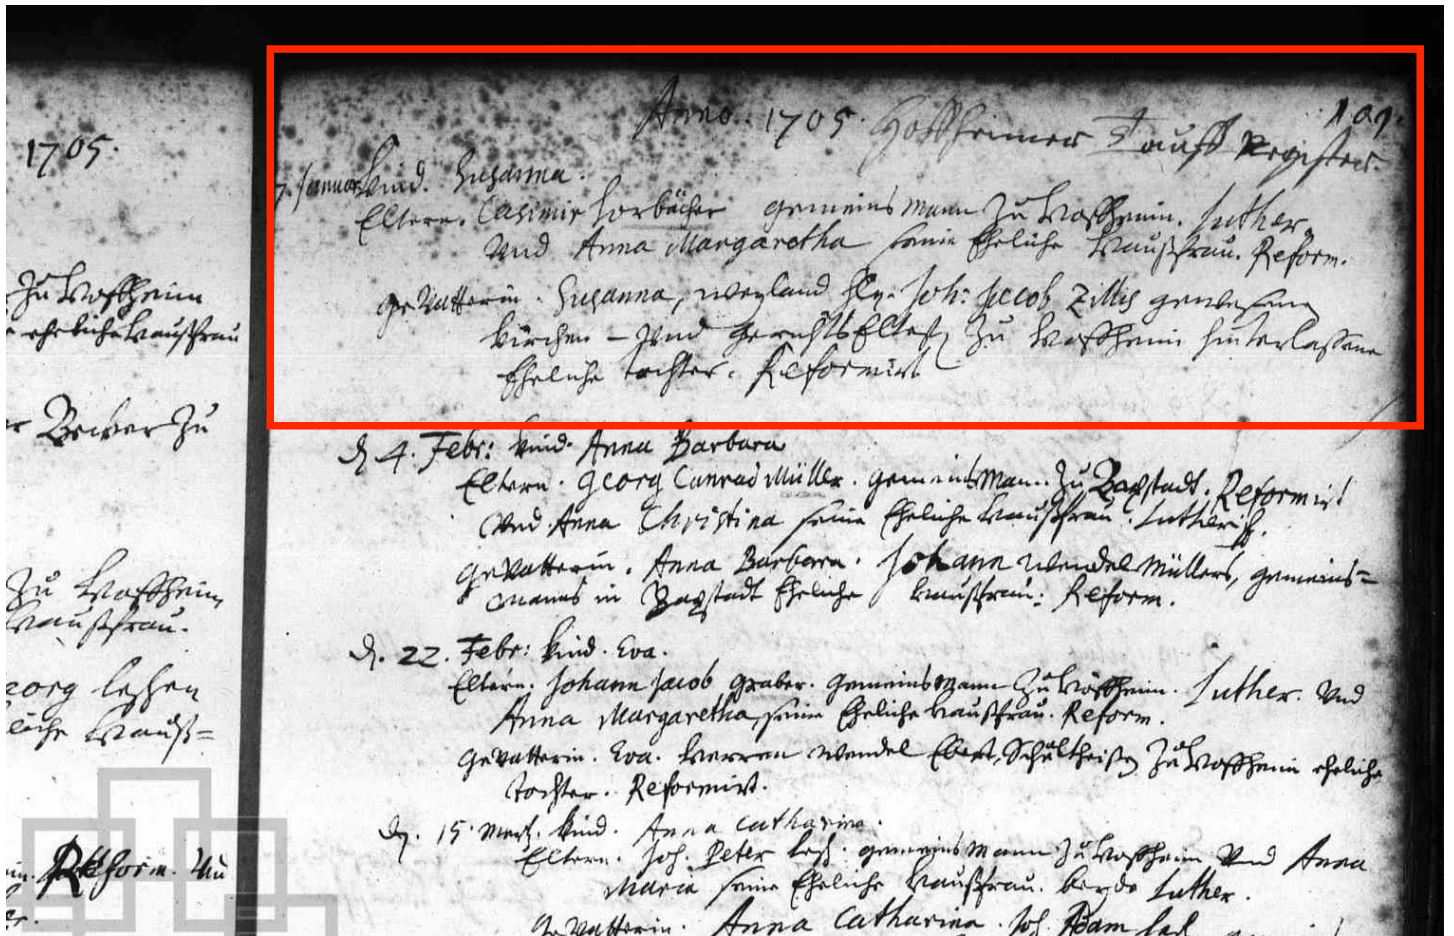 1705.
Zu Hoffheim
ehrliche Haußfrau
Becker Zu
Zu Hoffheim
Haußfrau.
Georg Leschen
liche Hauß=
Reform. Und
Anno. 1705. Hoffheimer Tauff Register.
7. Januar. Kind. Susanna.
Eltern. Casimir gemeinsMann Zu Hoffheim. Luther.
Und Anna Margaretha seine Eheliche Haußfrau. Reform.
geVatterin. Susanna, weyland Joh: Jacob Zillis gewesenen
Kirchen - Und gerichtsEltest Zu Hoffheim hinterlassene
Eheliche tochter. Reformirt
d. 4. Febr: Kind. Anna Barbara
Eltern. Georg Conrad Müller. gemeinsMan. Zu Reformirt
Und Anna Christina seine Eheliche Haußfrau. Lutherisch.
geVatterin. Anna Barbara. Johann Wendel Müllers, gemeins=
manns in Eheliche Haußfrau. Reform.
d. 22. Febr: Kind. Eva.
Eltern. Johann Jacob graber. gemeinsMann Zu Hoffheim. Luther. Und
Anna Margaretha, seine Eheliche Haußfrau. Reform.
geVatterin. Eva. Herren Wendel Ebert, Schultheißen Zu Hoffheim eheliche
tochter. Reformirt.
d. 15. Mertz. Kind. Anna Catharina.
Eltern. Joh. Peter Lesch. gemeinsMann Zu Hoffheim Und Anna
Maria seine Eheliche Haußfrau. beyde Luther.
geVatterin. Anna Catharina. Joh. Adam